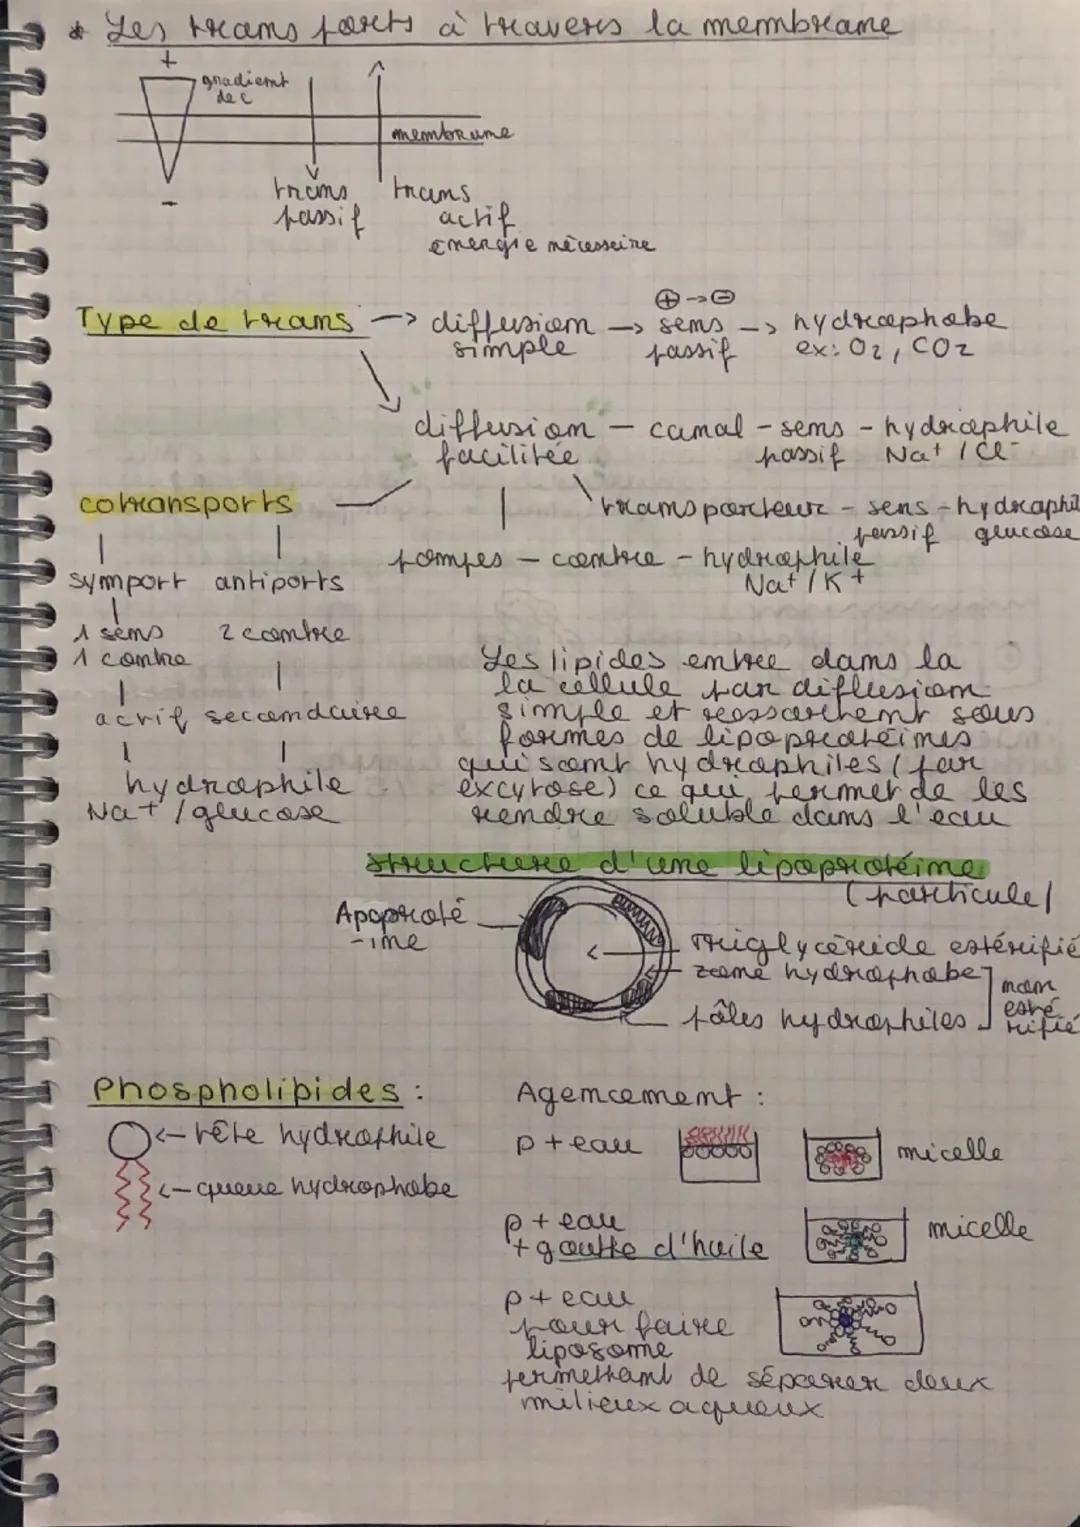 * Les transports à travers la membrane
+
gradient
de c
membrane
-
trans
passif
trans
actif
énergie nécessaire
⊕→⊖
Type de trans -> diffusion -> sens -> hydrophobe
simple passif ex: O2, CO2
diffusion - canal - sens - hydrophile
facilitée passif Na+ / Cl-
cotransports
transporteur - sens - hydrophil
passif glucose
pompes - contre - hydrophile
Na+ / K+
symport antiports
1 sens 2 contre
1 contre
actif secondaire
hydrophile
Na+ / glucose
Les lipides entre dans la
la cellule par diffusion
simple et ressortent sous
formes de lipoprotéines
qui sont hydrophiles (par
excytose) ce qui permet de les
rendre soluble dans l'eau
structure d'une lipoprotéine
(particule)
Apoproté
-ine
Triglycéride estérifié
zone hydrophobe
pôles hydrophiles
non
esté
rifié
Phospholipides : Agencement :
<- tête hydrophile
<- queue hydrophobe
p + eau micelle
p + eau
+ goutte d'huile micelle
p + eau
pour faire
liposome
permettant de séparer deux
milieux aqueux